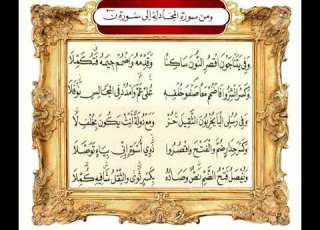 ومن سورة المجادلة إلى سورة ن
وَفِي يَتَنَاجَوْنَ اقْصُرِ النُّونَ سَاكِنًا وَقَدِّمْهُ وَاضْمُمْ جِيمَهُ فَتُكَمِّلَا
وَكَسْرَ انْشِزُوا فَاضْمُمْ مَعًا صَفْوَ خُلْفِهِ عُلًا عَمَّ وَامْدُدْ فِي الْمَجَالِسِ نَوْفَلَا
وَفِي رُسُلِي الْيَا يُخْرِبُونَ الثَّقِيلَ حُزْ وَمَعْ دُولَةً أَنِّثْ يَكُونَ بِخُلْفِ لَا
وَكَسْرَ جِدَارٍ ضُمَّ وَالْفَتْحَ وَاقْصُرُوا ذَوِي أُسْوَةٍ إِنِّي بِيَاءٍ تَوَصَّلَا
وَيُفْصَلُ فَتْحُ الضَّمِّ نَصٌّ وَصَادُهُ بِكَسْرٍ ثَوَى وَالثِّقْلُ شَافِيهِ كُمِّلَا